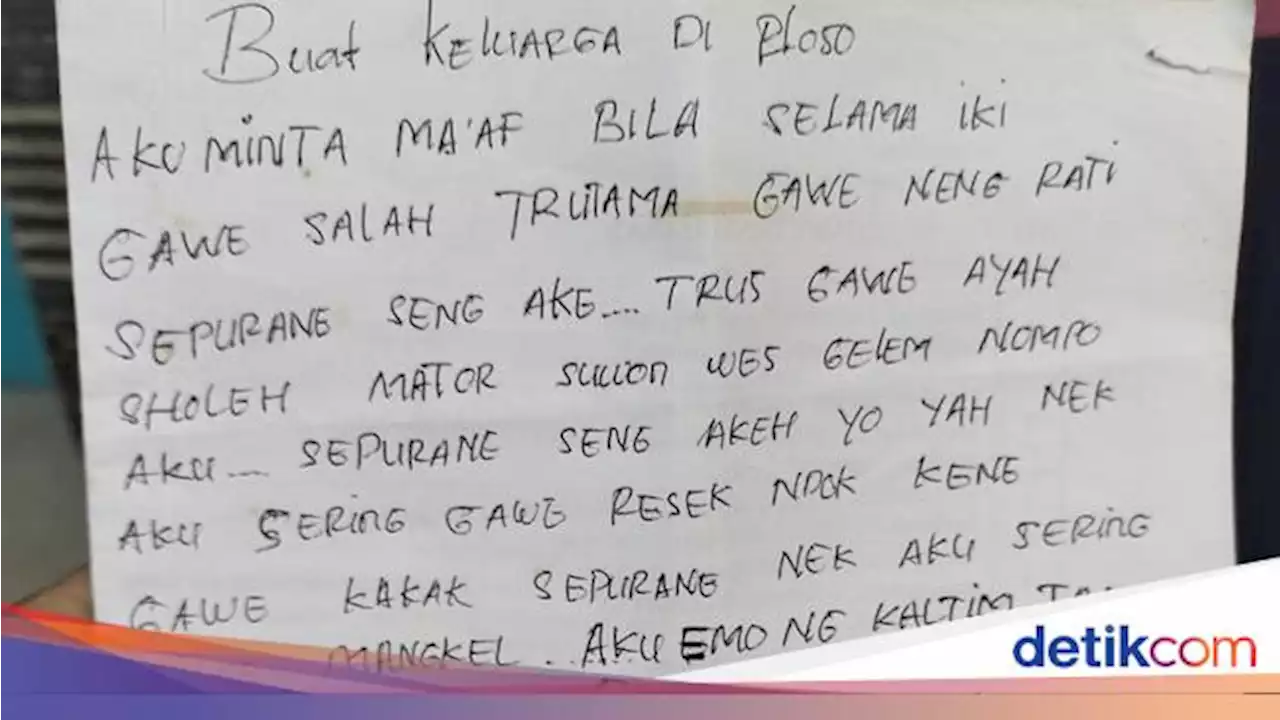 Buat KELUARGA DI PLOSO
AKU MINTA MA'AF BILA SELAMA iKi
GAWE SALAH TRUTAMA GAWE NENG RATi
SEPURANE SENG AKE.... TRUS GAWE AYAH
SHOLEH MATOR SUWON WES GELEM NOMPO
AKU.... SEPURANE SENG AKEH YO YAH NEK
AKU SERiNG GAWE RESEK NDOK KENE
GAWE KAKAK SEPURANE NEK AKU SERiNG
MANGKEL... AKU EMONG KALTIM
detikcom